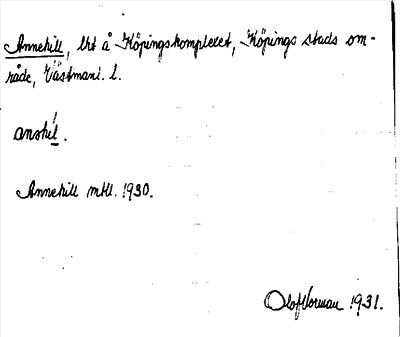 Annehill, lht å Köpingskomplexet, Köpings stads om-
råde, Västmanl. l.
Annehill mtl. 1930.
Olof Norman 1931.